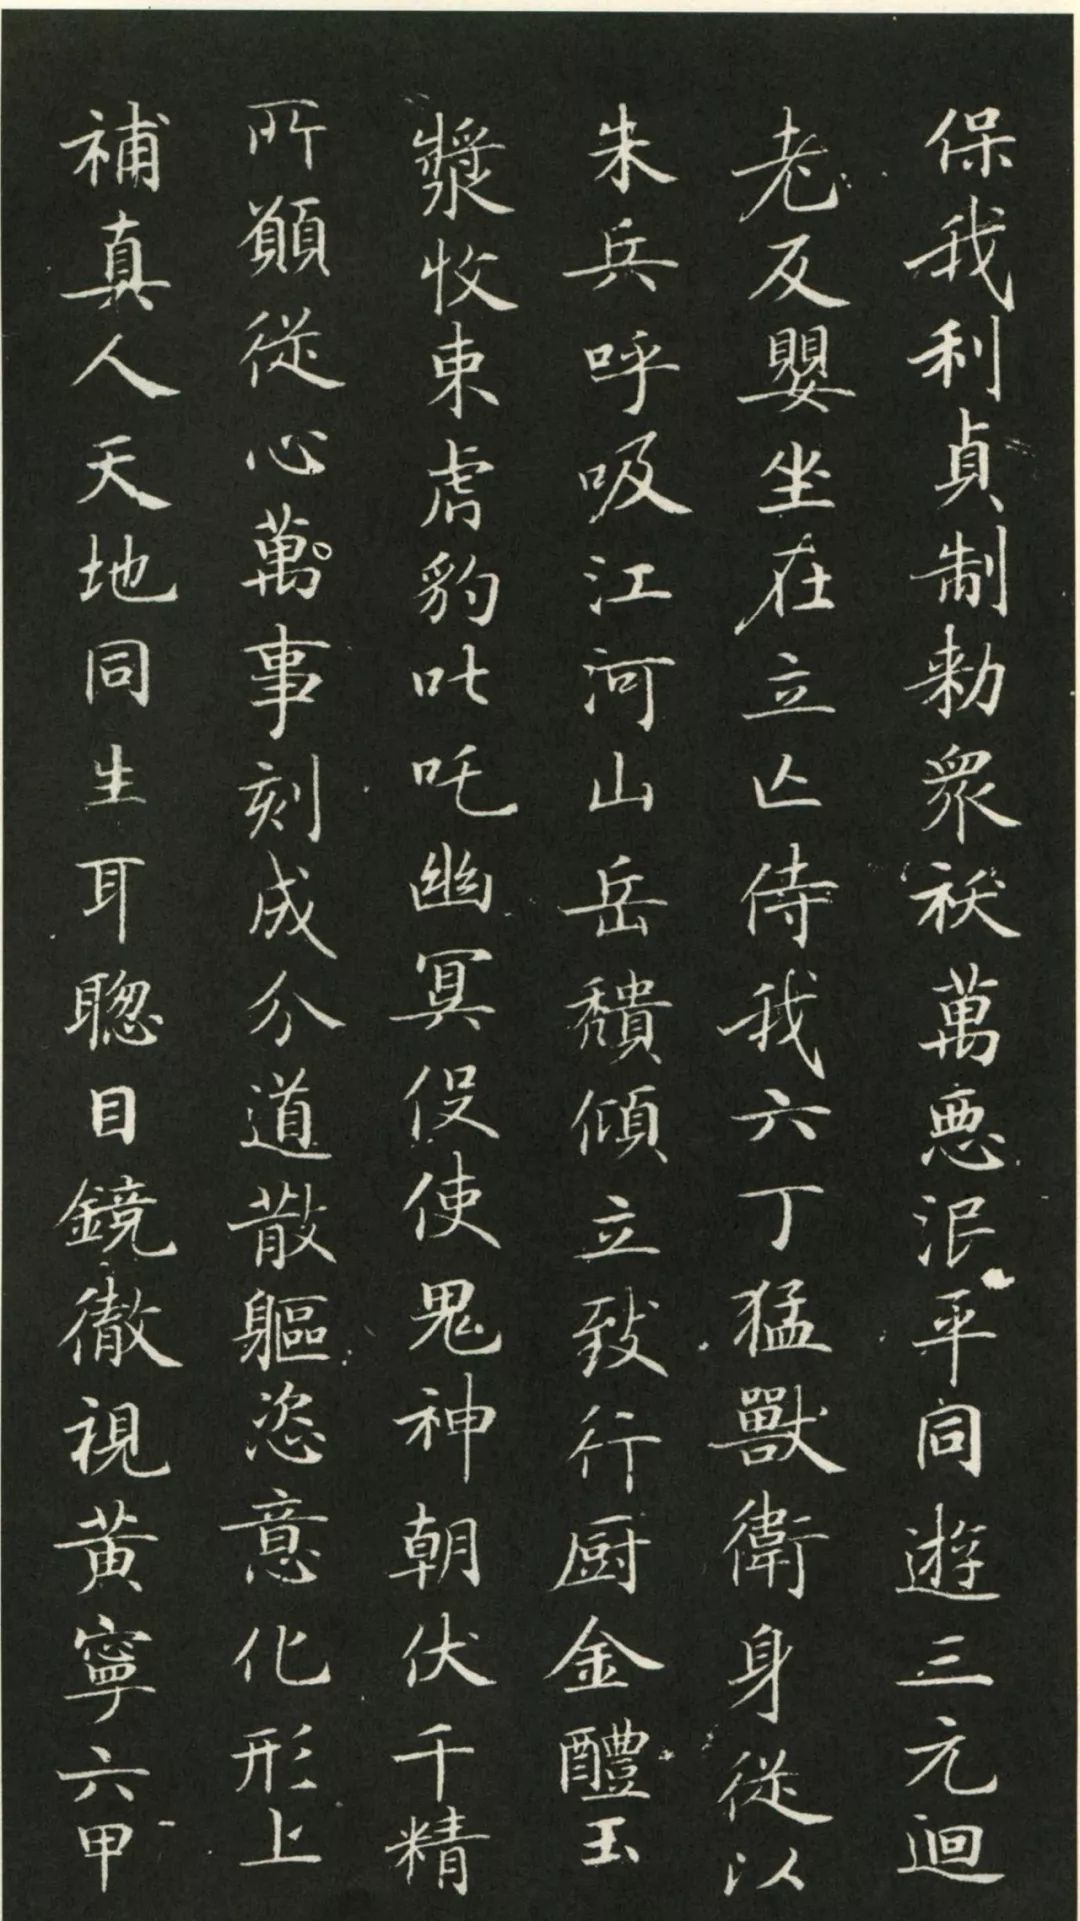 保我利貞制勑衆袄萬惡泯平同遊三元迴
老反嬰坐在立亾侍我六丁猛獸衛身從以
朱兵呼吸江河山岳穨傾立致行厨金醴玉
漿收束虎豹叱吒幽冥役使鬼神朝伏千精
所願從心萬事剋成分道散軀恣意化形上
補真人天地同生耳聰目鏡徹視黃寧六甲